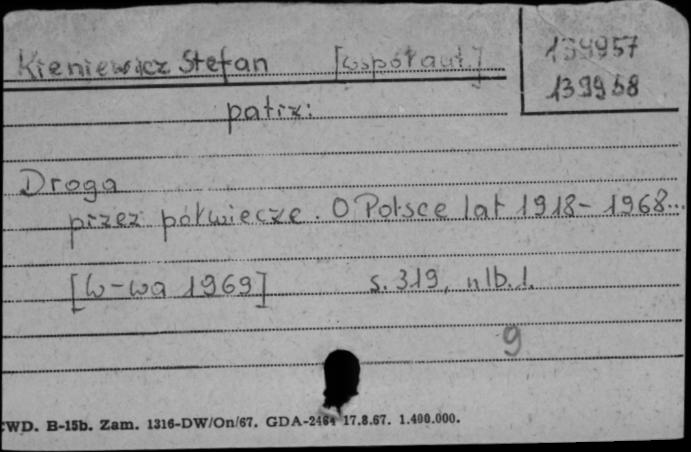 Kieniewicz Stefan [współaut.]
139957
139958
patrz:
Droga
przez półwiecze. O Polsce lat 1918-1968...
[W-wa 1969] s. 319, nlb. 1.
9
CWD. B-15b. Zam. 1316-DW/On/67. GDA-2464 17.8.67. 1.400.000.